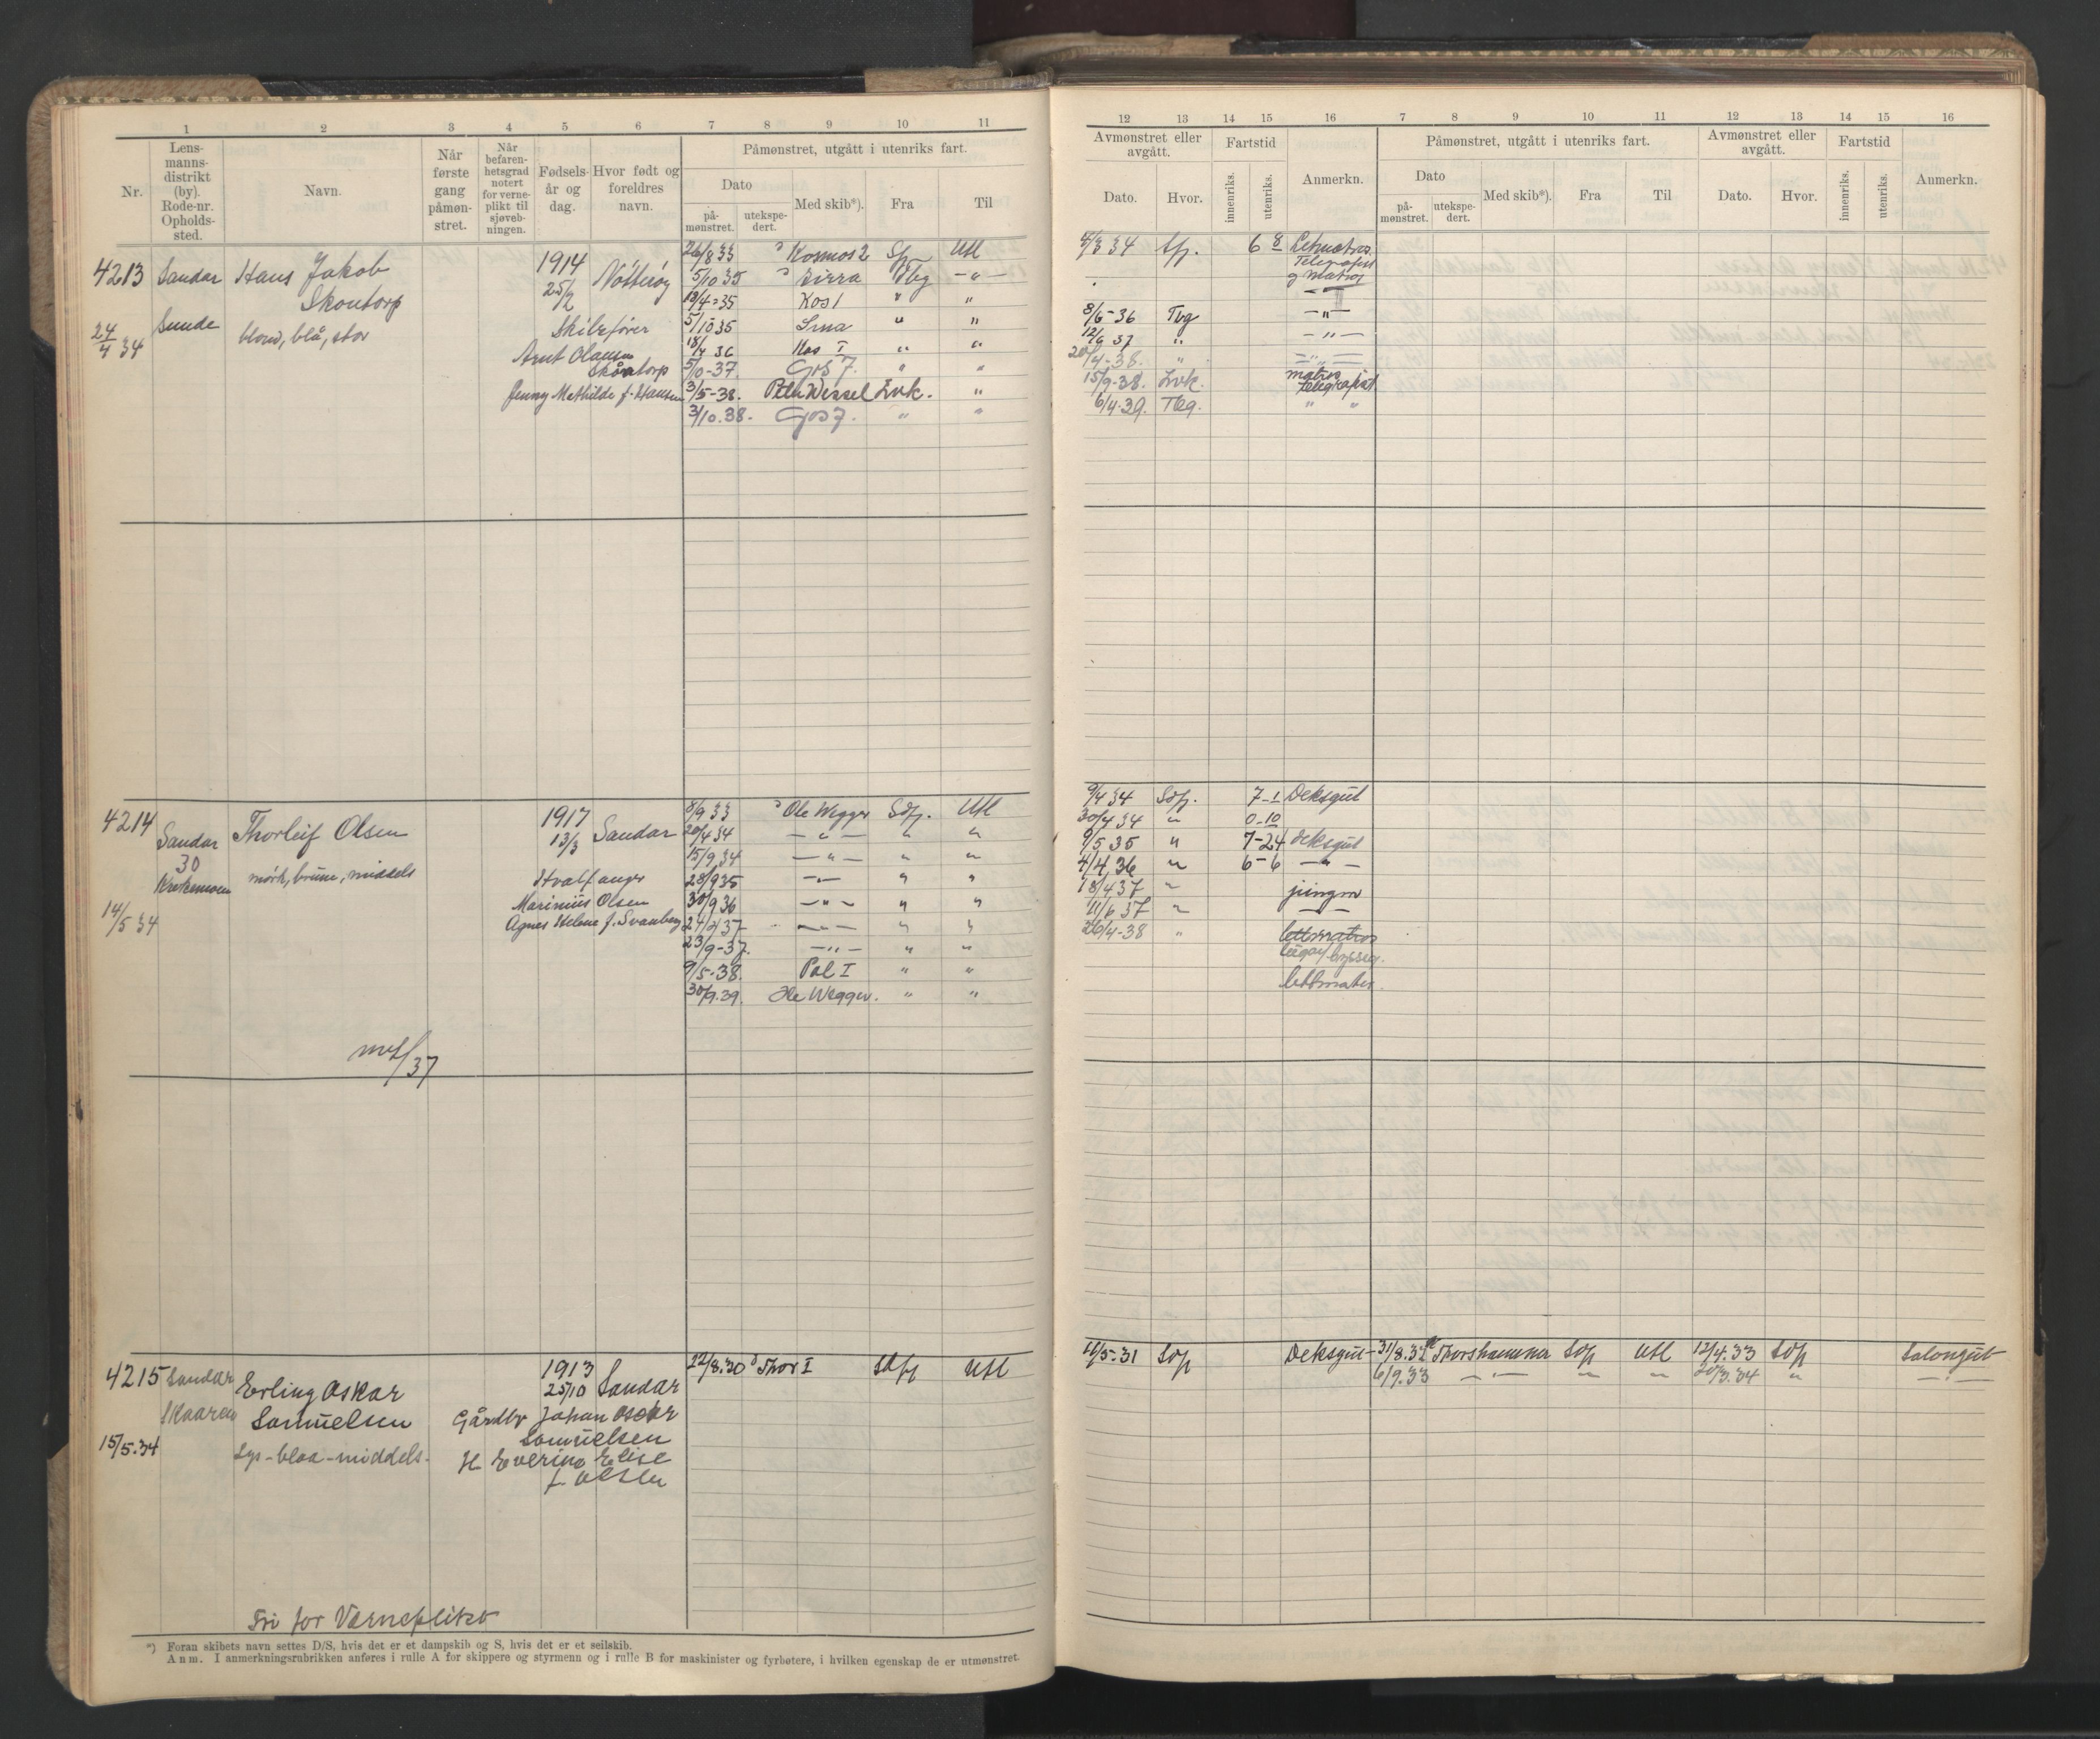 1 2 3 4 5 6 7 8 9 10 11
Nr.
Lens-
manns-
distrikt
(by).
Rode-nr.
Opholds-
sted.
Navn.
Når
første
gang
påmøn-
stret.
Når
befaren-
hetsgrad
notert
for verne-
plikt til
sjøveb-
ningen.
Fødsels-
år og
dag.
Hvor født og
foreldres
navn.
Påmønstret, utgått i utenriks fart.
Dato
på-
mønstret.
utekspe-
dert.
Med skib*).
Fra
Til
4213 Sandar Hans Jakob
Skontorp
Sunde
24/4 34
blond, blå, stor
1914
25/2 Nøtterøy
Skibsfører
Arnt Olausen
Skontorp
Jenny Mathilde f. Hansen
26/8 33 Kosmos 2 Utl
5/10 35 Tbg - " -
18/4-35 Kos I " "
5/10 35 " "
18/4 36 Kos I " "
5/10-37. Gos 7. " "
3/5-38. Lvk. "
3/10.38. Gos 7. " "
4214 Sandar Thorleif Olsen
30
14/5 34
mørk, brune, middels
1917
13/3 Sandar
Hvalfanger
Marinius Olsen
Agnes Helene f. Svanberg
8/9 33 Ole Wegger Sdfj. Utl
20/4 34 - " - " "
15/9 34 - " - " "
28/9 35 - " - " "
30/9 36 - " - " "
24/4 37 - " - " "
23/9-37. - " - " "
9/5-38. Pol I " "
30/9.39. Ole Wegger. " "
4215 Sandar Erling Oskar
Skaaren Samuelsen
15/5.34
Lys-blaa-middels.
1913
25/10 Sandar
Gårdbr Johan Oscar
Samuelsen
H Everine Elise
f. Olsen
22/8.30 Thor I Sdfj Utl
Fri for Verneplikt
*) Foran skibets navn settes D/S, hvis det er et dampskib og S, hvis det er et seilskib.
Anm. I anmerkningsrubrikken anføres i rulle A for skippere og styrmenn og i rulle B for maskinister og fyrbøtere, i hvilken egenskap de er utmønstret.
12 13 14 15 16 7 8 9 10 11 12 13 14 15 16
Avmønstret eller
avgått.
Dato.
Hvor.
Fartstid
innenriks.
utenriks.
Anmerkn.
Påmønstret, utgått i utenriks fart.
Dato
på-
mønstret.
utekspe-
dert.
Med skib*).
Fra
Til
Avmønstret eller
avgått.
Dato.
Hvor.
Fartstid
innenriks.
utenriks.
Anmerkn.
6 8
Telegrafist
og matros
8/6-36 Tbg - " -
12/6 37 " - " -
20/4-38. " - " -
15/9-38. Lvk. matros
telegrafist
6/4-39. Tbg. " "
9/4 34 Sdfj. 7-1 Deksgut
30/4 34 " 0-10
9/5 35 " 7-24 deksgut
4/4 36 " 6-6 - " -
18/4 37 " jungm
11/6 37 "
26/4-38 " lettmatros
lettmatros
Sdfj Deksgut 31/8.32 Thorshammer Sdfj Utl 12/4.33 Sdfj Salongut
6/9.33 - " - " " 20/3.34 " - " -